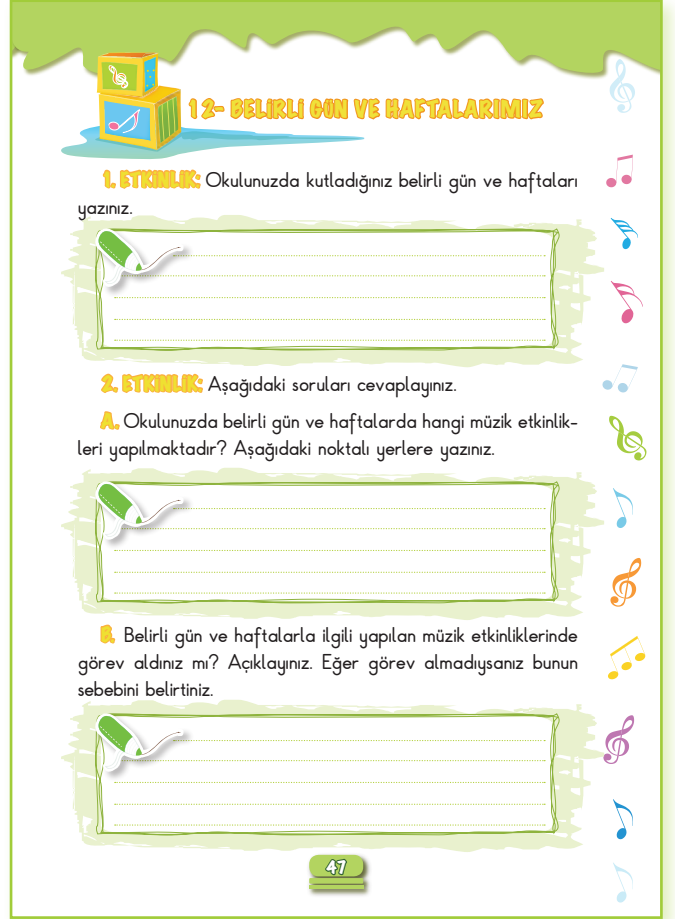 12- BELİRLİ GÜN VE HAFTALARIMIZ
1. ETKİNLİK: Okulunuzda kutladığınız belirli gün ve haftaları
yazınız.
2. ETKİNLİK: Aşağıdaki soruları cevaplayınız.
A. Okulunuzda belirli gün ve haftalarda hangi müzik etkinlik-
leri yapılmaktadır? Aşağıdaki noktalı yerlere yazınız.
B. Belirli gün ve haftalarla ilgili yapılan müzik etkinliklerinde
görev aldınız mı? Açıklayınız. Eğer görev almadıysanız bunun
sebebini belirtiniz.
47